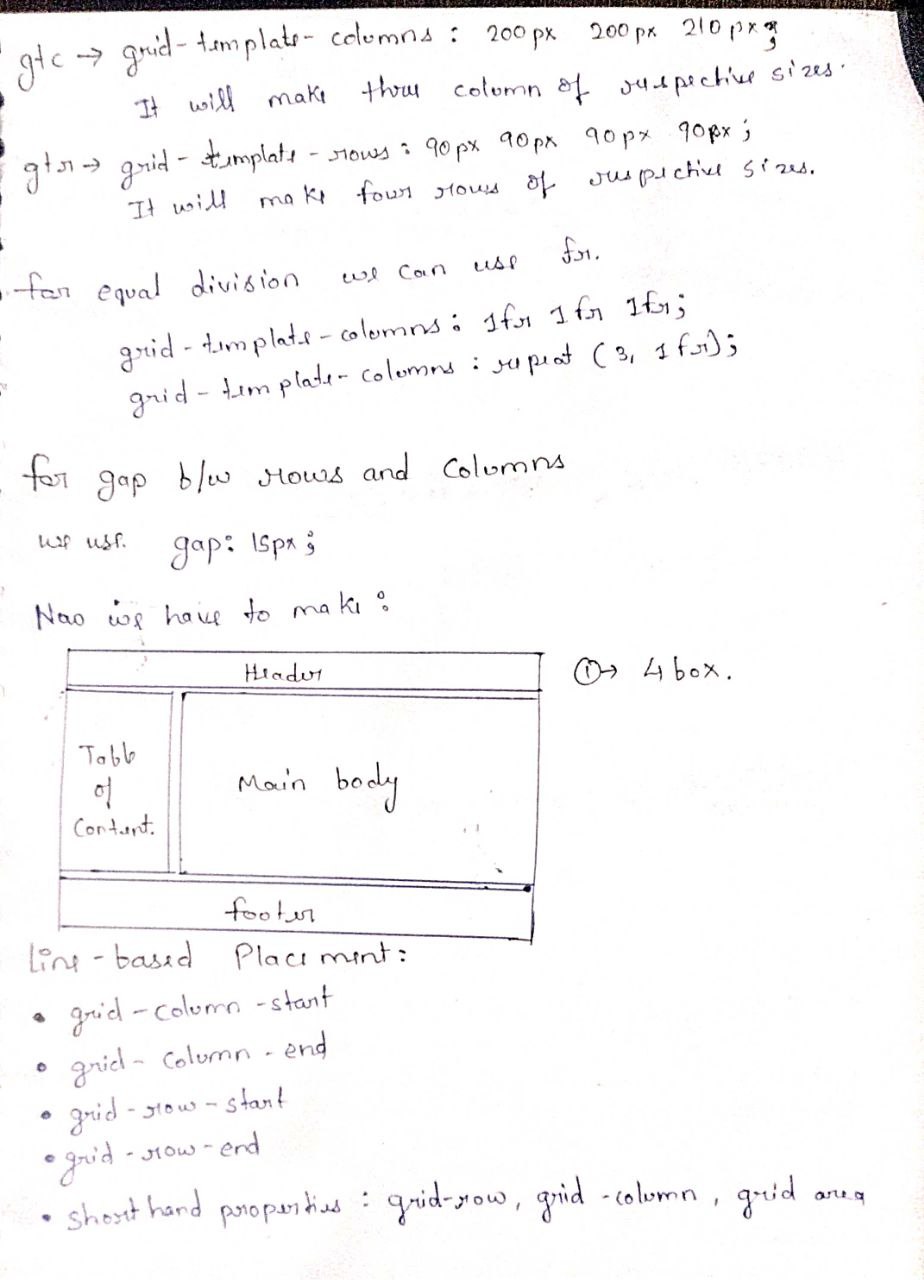 gtc → grid-template-columns : 200px 200px 210px;
It will make three column of respective sizes.
gtr → grid-template-rows : 90px 90px 90px 90px;
It will make four rows of respective sizes.
for equal division we can use fr.
grid-template-columns : 1fr 1fr 1fr;
grid-template-columns : repeat (3, 1fr);
for gap b/w rows and Columns
we use. gap: 15px;
Nao we have to make :
Header
① → 4 box.
Table
of
Content.
Main body
footer
Line-based Placement:
• grid-column-start
• grid-column-end
• grid-row-start
• grid-row-end
• Short hand properties : grid-row, grid-column, grid area